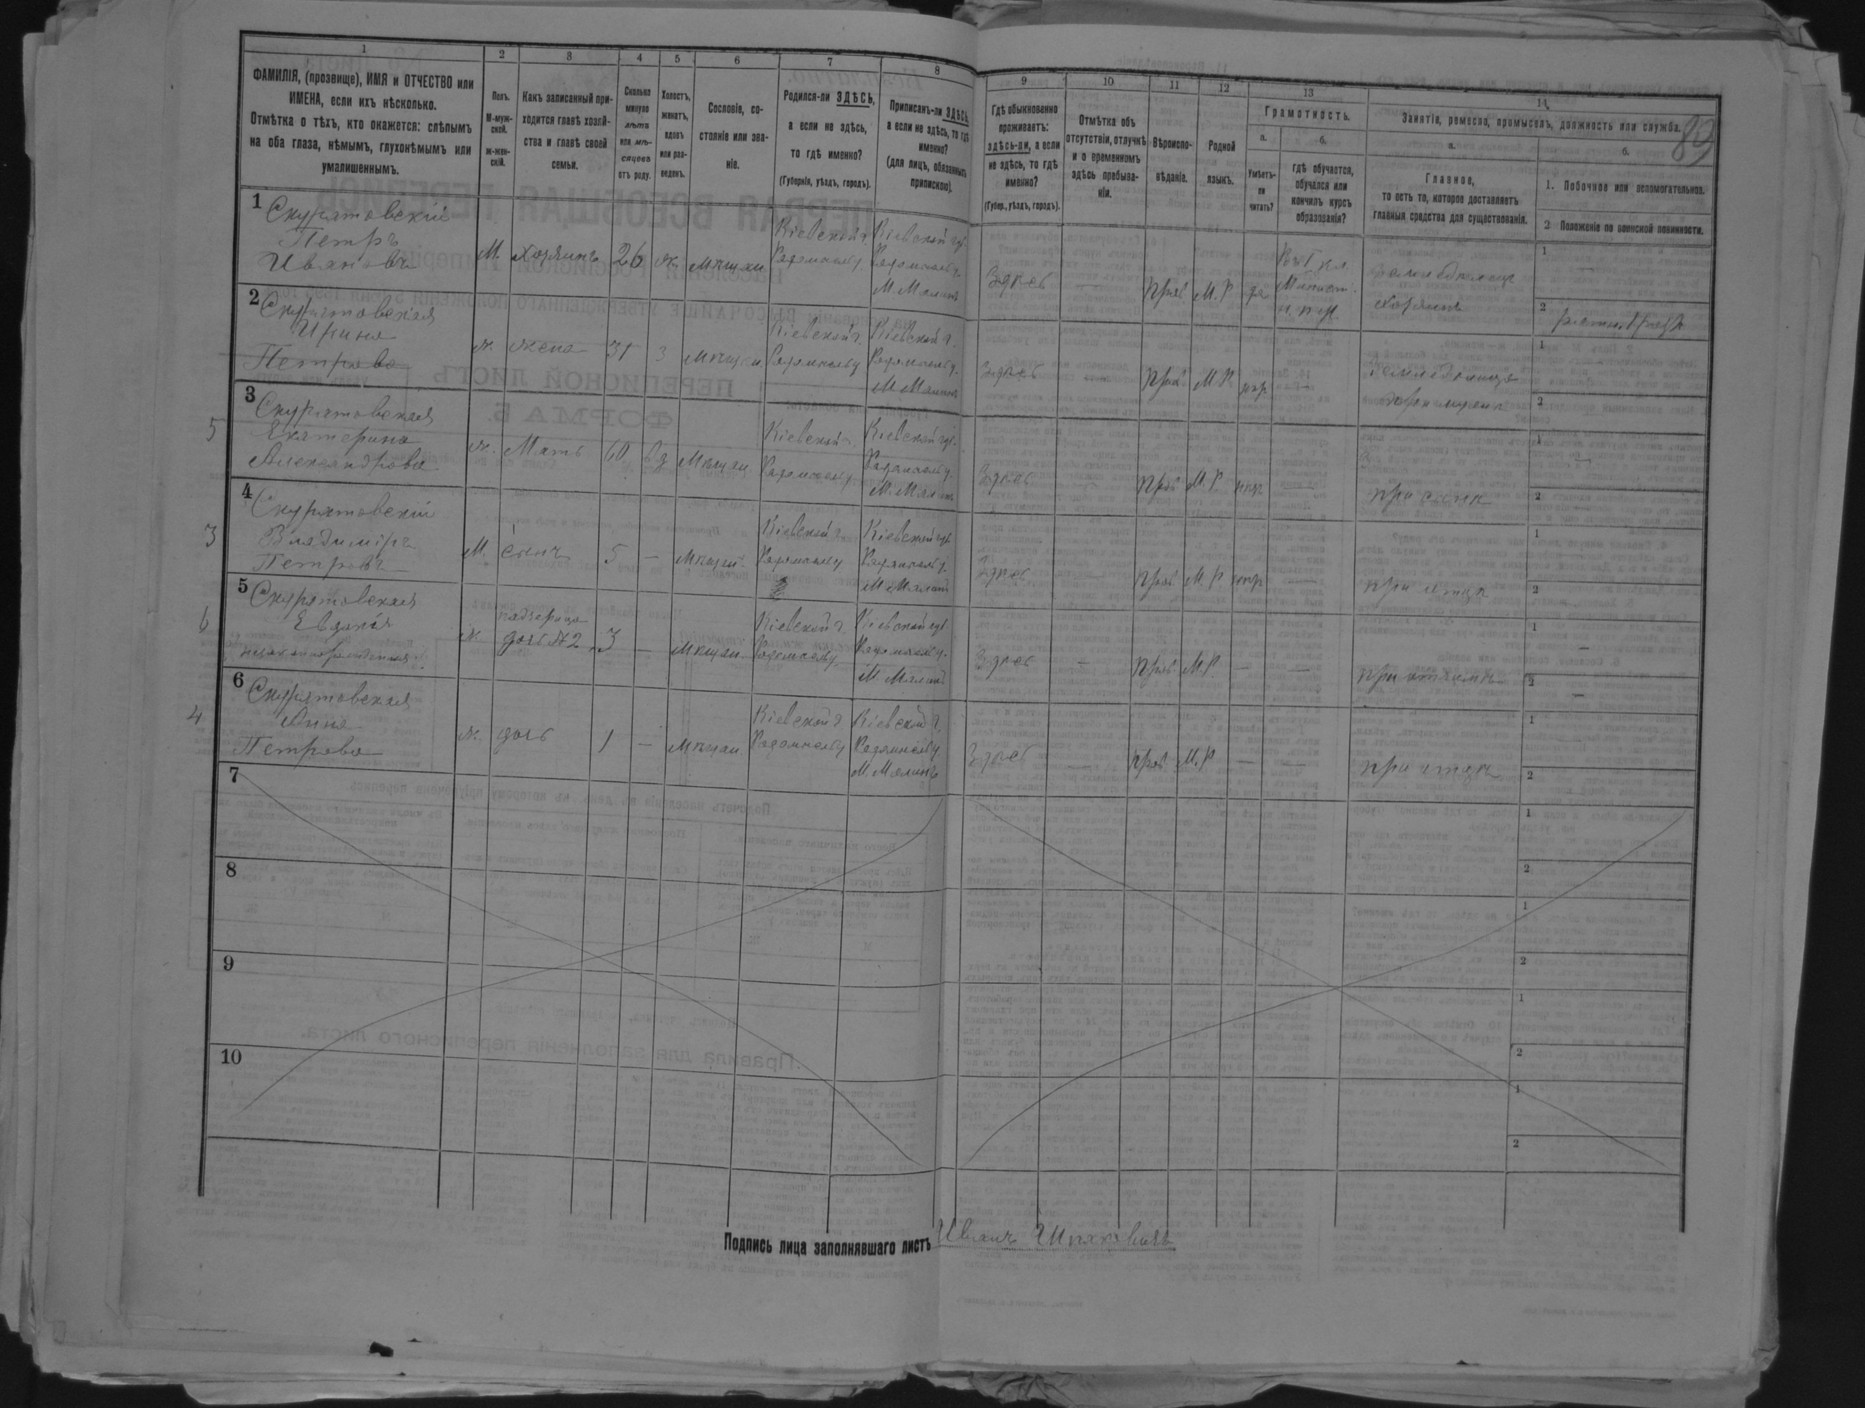 1 2 3 4 5 6 7 8 9 10 11 12 13 14
89
ФАМИЛІЯ, (прозвище), ИМЯ и ОТЧЕСТВО или
ИМЕНА, если ихъ нѣсколько.
Отмѣтка о тѣхъ, кто окажется: слѣпымъ
на оба глаза, нѣмымъ, глухонѣмымъ или
умалишеннымъ.
Полъ.
М-муж-
ской.
ж-жен-
скій.
Какъ записанный при-
ходится главѣ хозяй-
ства и главѣ своей
семьи.
Сколько
минуло
лѣтъ
или мѣ-
сяцевъ
отъ роду.
Холостъ,
женатъ,
вдовъ
или раз-
веденъ.
Сословіе, со-
стояніе или зва-
ніе.
Родился-ли ЗДѢСЬ,
а если не здѣсь,
то гдѣ именно?
(Губернія, уѣздъ, городъ).
Приписанъ-ли ЗДѢСЬ,
а если не здѣсь, то гдѣ
именно?
(для лицъ, обязанныхъ
припискою).
Гдѣ обыкновенно
проживаетъ:
здѣсь-ли, а если
не здѣсь, то гдѣ
именно?
(Губер., уѣздъ, городъ).
Отмѣтка объ
отсутствіи, отлучкѣ
и о временномъ
здѣсь пребыва-
ніи.
Вѣроиспо-
вѣданіе.
Родной
языкъ.
Грамотность.
а.
Умѣетъ-
ли
читать?
б.
гдѣ обучается,
обучался или
кончилъ курсъ
образованія?
Занятія, ремесло, промыселъ, должность или служба.
а.
Главное,
то есть то, которое доставляетъ
главныя средства для существованія.
б.
1. Побочное или вспомогательное.
2 Положеніе по воинской повинности.
1 Скуратовскій
Петръ
Ивановъ
М. хозяинъ 26 ж. мѣщан
Кіевской г.
Радомысл у.
Кіевской губ.
Радомысл у.
М. Малинъ
Здѣсь — Прав. М.Р да
хозяинъ
2 Скуратовская
Ирина
Петрова
ж. жена 31 з мѣщан
Кіевской г.
Радомысл у
Кіевской г.
Радомысл у.
М. Малинъ
Здѣсь — Прав. М.Р. нгр —
3 Скуратовская
5 Екатерина
Александрова
ж. Мать 60 вд мѣщан
Кіевской г.
Радомысл у
Кіевской губ.
Радомысл у.
М. Малинъ
Здѣсь — Прав. М.Р нгр —
при сынѣ
4 Скуратовскій
3 Владиміръ
Петровъ
М. сынъ 5 — мѣщан.
Кіевской г.
Радомысл у
Кіевской губ
Радомысл у.
М. Малинъ
Здѣсь — Прав. М.Р нгр —
при отцѣ
5 Скуратовская
6 Евдокія
незаконнорожденная
ж. падчерица
дочь №2 3 — мѣщан.
Кіевской г.
Радомысл у
Кіевской губ
Радомысл у.
М. Малинъ
Здѣсь — Прав М.Р — —
при отчимѣ
6 Скуратовская
4 Анна
Петрова
ж. дочь 1 — мѣщан
Кіевской г
Радомысл у
Кіевской г.
Радомысл у
М. Малинъ
Здѣсь — Прав. М.Р — —
при отцѣ
7
8
9
10
Подпись лица заполнявшаго листъ Иванъ